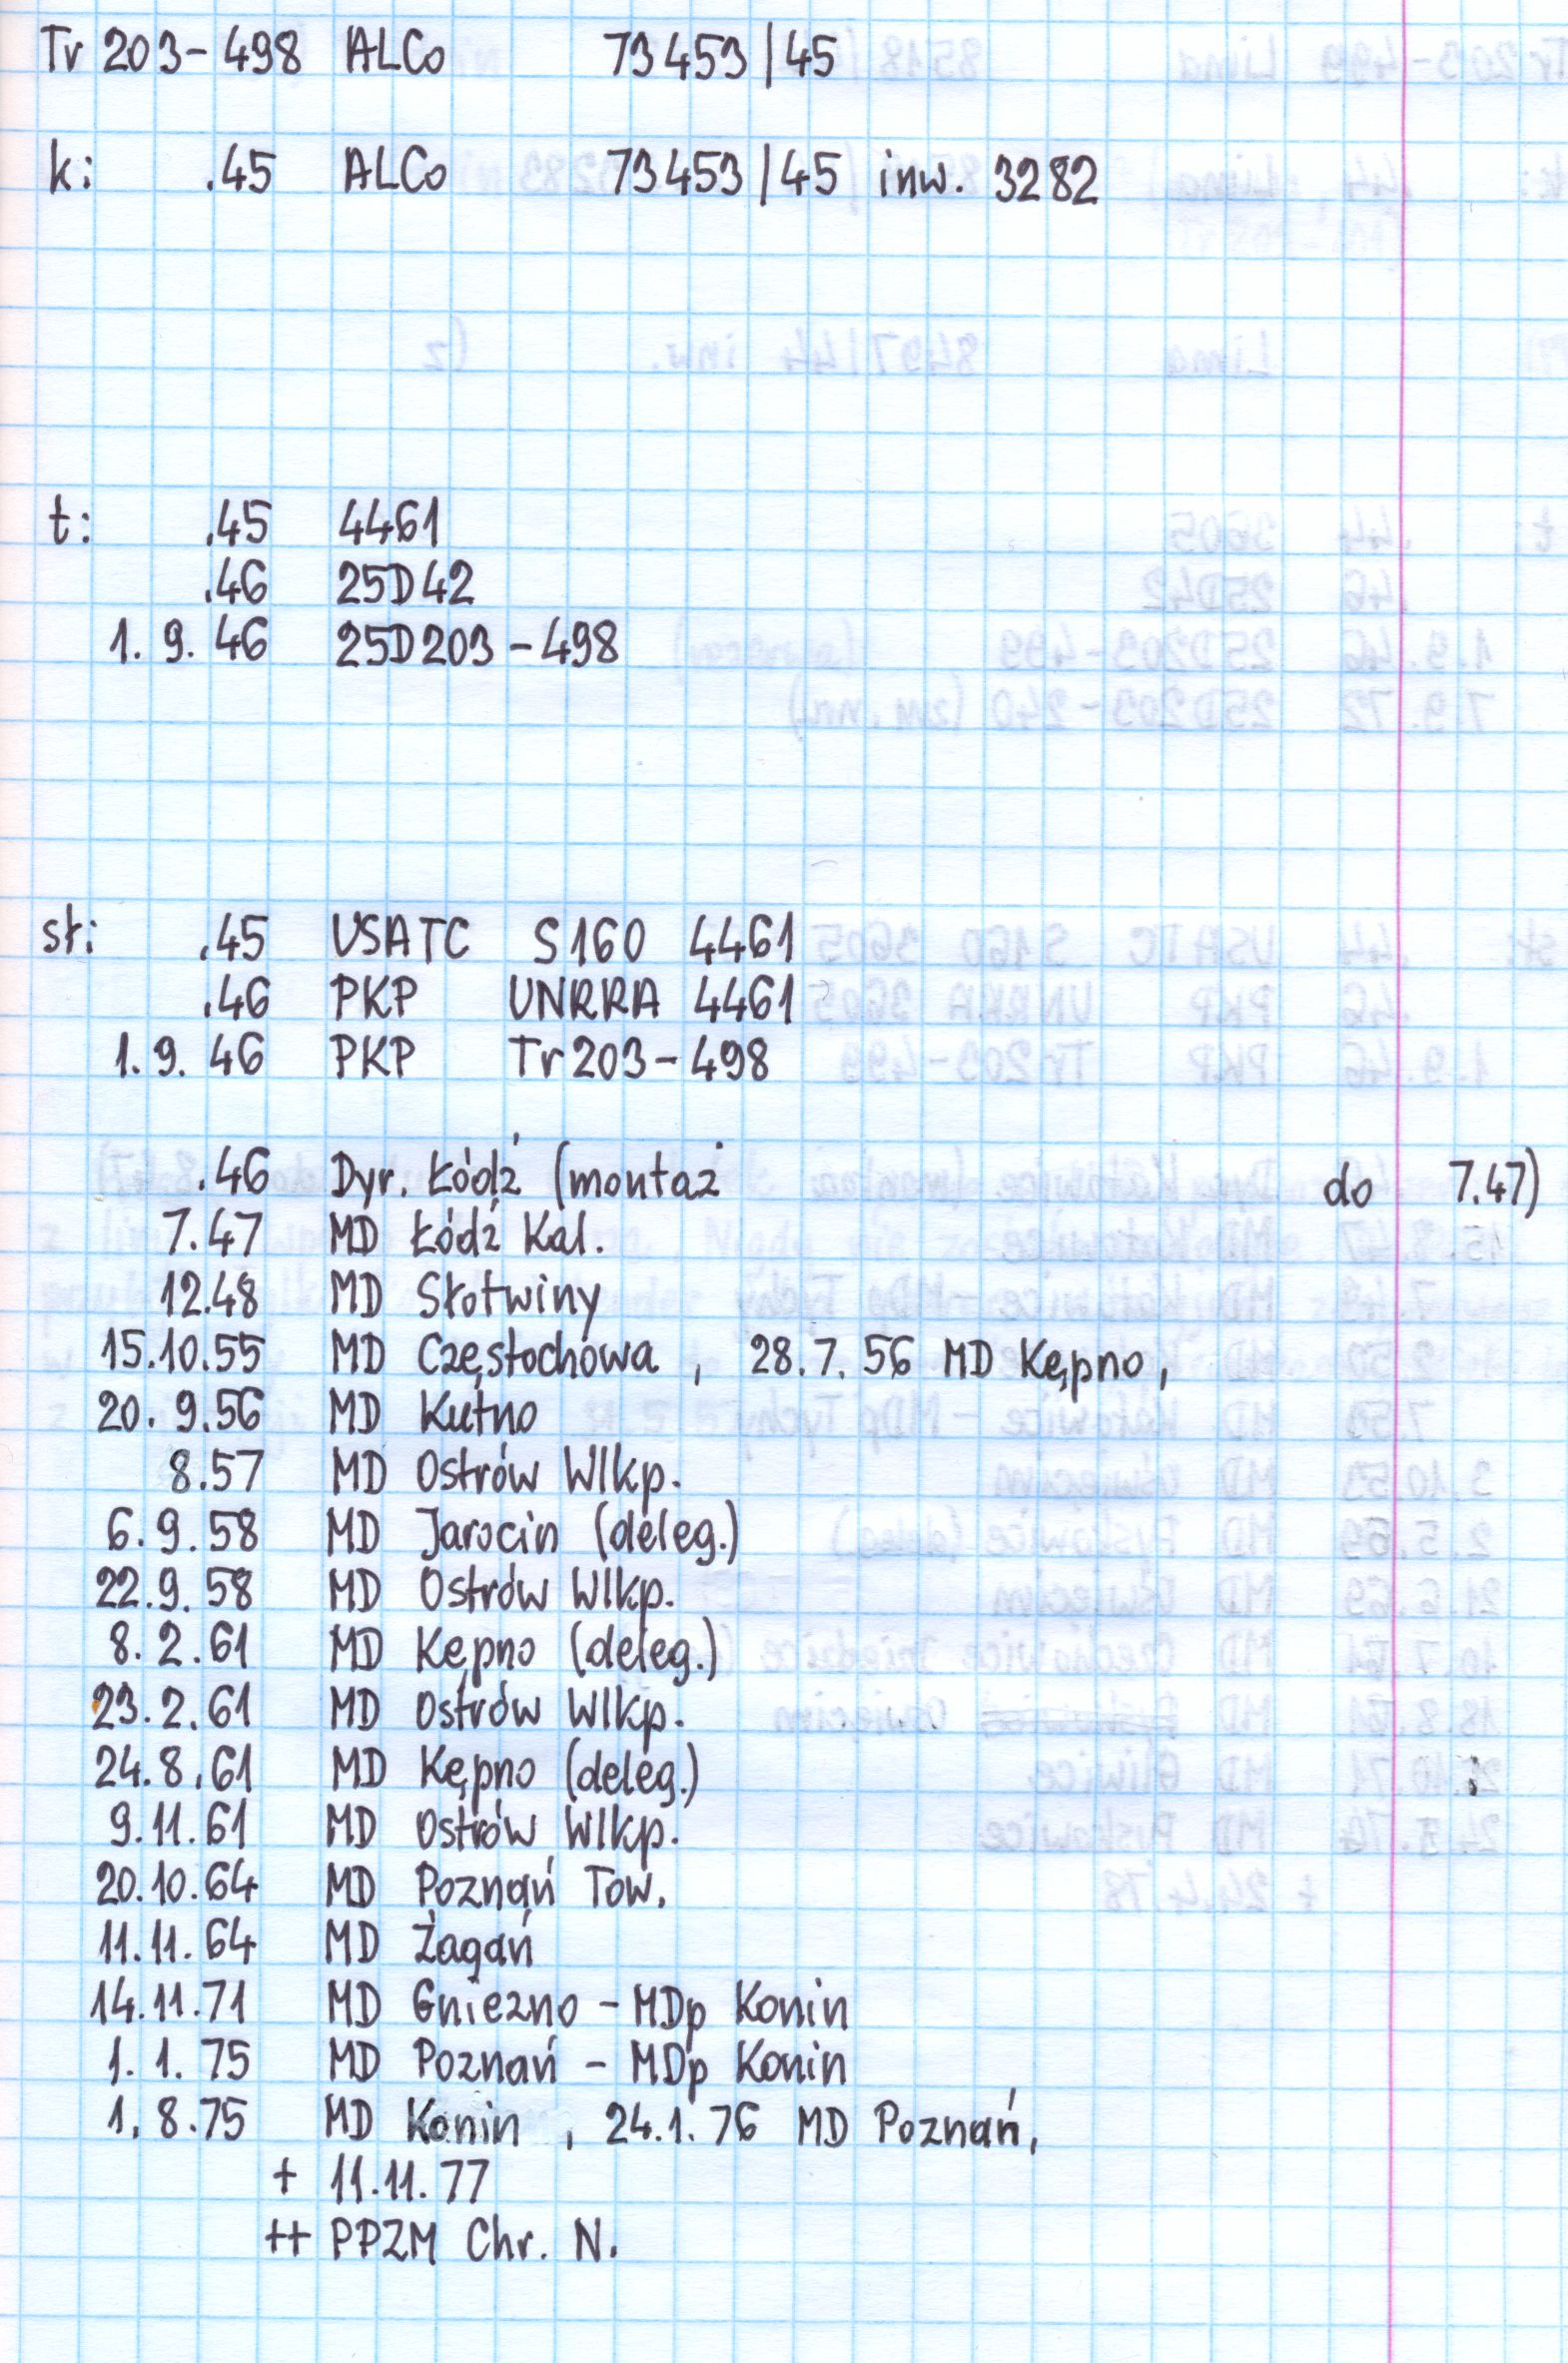 Tr 203-498 ALCo 73453/45
k: .45 ALCo 73453/45 inw. 3282
t: .45 4461
.46 25D42
1. 9. 46 25D203-498
sł: .45 USATC S160 4461
.46 PKP UNRRA 4461
1. 9. 46 PKP Tr203-498
.46 Dyr. Łódź (montaż do 7.47)
7.47 MD Łódź Kal.
12.48 MD Słotwiny
15.10.55 MD Częstochowa , 28.7.56 MD Kępno,
20. 9.56 MD Kutno
8.57 MD Ostrów Wlkp.
6. 9. 58 MD Jarocin (deleg.)
22.9. 58 MD Ostrów Wlkp.
8. 2. 61 MD Kępno (deleg.)
23.2.61 MD Ostrów Wlkp.
24.8.61 MD Kępno (deleg.)
9.11.61 MD Ostrów Wlkp.
20.10.64 MD Poznań Tow.
11.11.64 MD Żagań
14.11.71 MD Gniezno - MDp Konin
1. 1. 75 MD Poznań - MDp Konin
1. 8.75 MD Konin , 24.1.76 MD Poznań,
+ 11.11.77
++ PPZM Chr. N.